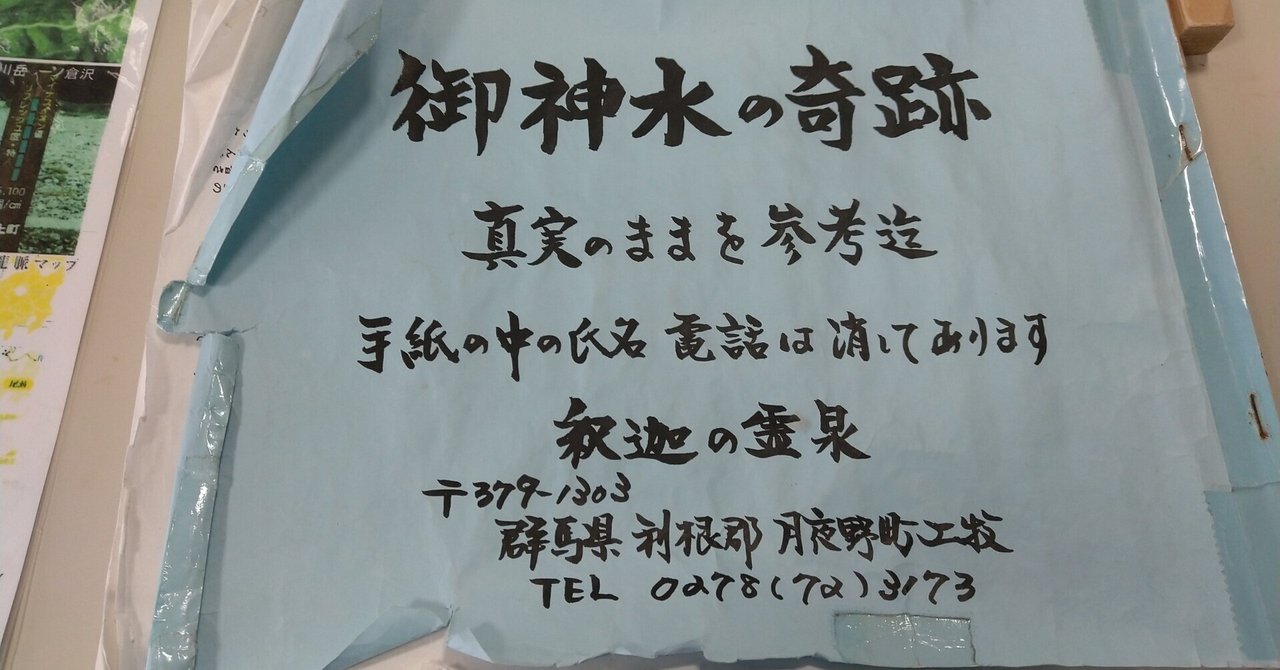 御神水の奇跡
真実のままを参考迄
手紙の中の氏名 電話は消してあります
釈迦の霊泉
〒379-1303
群馬県 利根郡 月夜野町上牧
TEL 0278(72)3173
川岳 一ノ倉沢
5,100
脈マップ